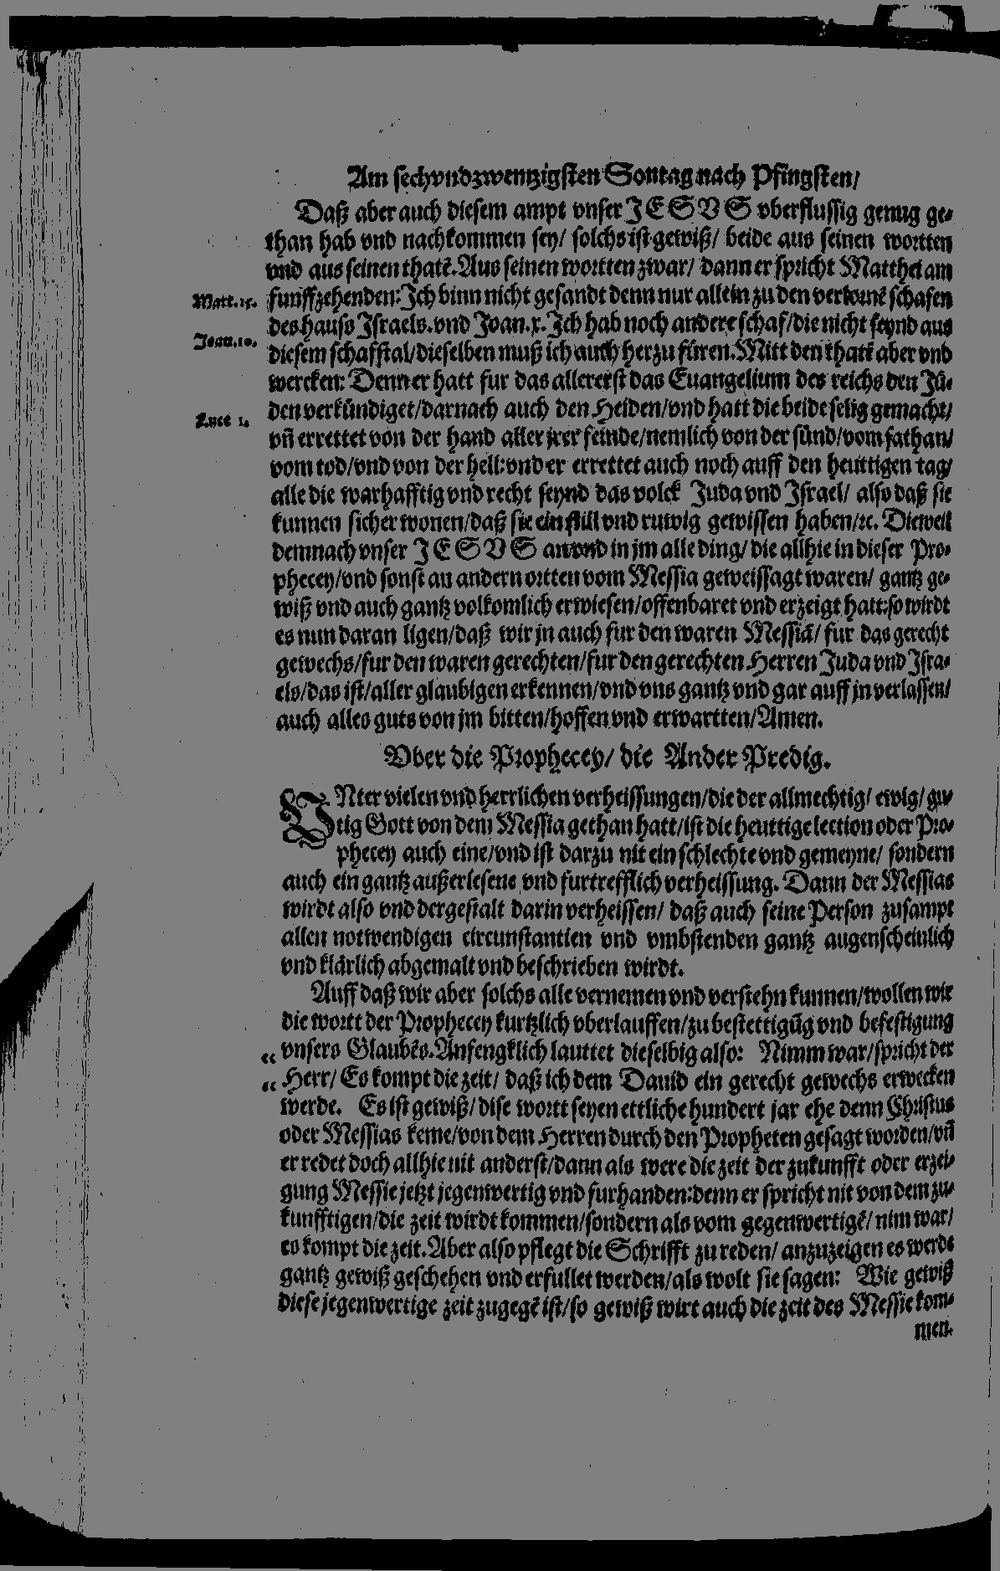 Am sechvndzwentzigsten Sontag nach Pfingsten/
Daß aber auch diesem ampt vnser JESVS vberflussig genug ge-
than hab vnd nachkommen sey/ solchs ist gewiß/ beide aus seinen wortten
vnd aus seinen thatẽ. Aus seinen wortten zwar/ dann er spricht Matthei am
Matt. 15. funffzehenden: Ich binn nicht gesandt denn nur allein zu den verlornẽ schafen
des hauss Israels. vnd Joan. x. Ich hab noch andere schaf/ die nicht seynd aus
Joan. 10. diesem schafstal/ dieselben muß ich auch herzu füren. Mitt den thatẽ aber vnd
wercken: Denn er hatt fur das allererst das Euangelium des reichs den Jü-
Luce 1. den verkündiget/ darnach auch den Heiden/ vnd hatt die beide selig gemacht/
vñ errettet von der hand aller jrer feinde/ nemlich von der sünd/ vom sathan/
vom tod/ vnd von der hell: vnd er errettet auch noch auff den heuttigen tag/
alle die warhafftig vnd recht seynd das volck Juda vnd Israel/ also daß sie
kunnen sicher wonen/ daß sie ein still vnd ruwig gewissen haben/ ꝛc. Dieweil
demnach vnser JESVS an vnd in jm alle ding/ die allhie in dieser Pro-
phecey/ vnd sonst an andern ortten vom Messia geweissagt waren/ gantz ge-
wiß vnd auch gantz volkomlich erwiesen/ offenbaret vnd erzeigt hatt: so wirdt
es nun daran ligen/ daß wir jn auch fur den waren Messiã/ fur das gerecht
gewechs/ fur den waren gerechten/ fur den gerechten Herren Juda vnd Isra-
els/ das ist/ aller glaubigen erkennen/ vnd vns gantz vnd gar auff jn verlassen/
auch alles guts von jm bitten/ hoffen vnd erwartten/ Amen.
Vber die Prophecey/ die Ander Predig.
VNter vielen vnd herrlichen verheissungen/ die der allmechtig/ ewig/ gu-
tig Gott von dem Messia gethan hatt/ ist die heuttige lection oder Pro-
phecey auch eine/ vnd ist darzu nit ein schlechte vnd gemeyne/ sondern
auch ein gantz außerlesene vnd furtrefflich verheissung. Dann der Messias
wirdt also vnd dergestalt darin verheissen/ daß auch seine Person zusampt
allen notwendigen circunstantien vnd vmbstenden gantz augenscheinlich
vnd klärlich abgemalt vnd beschrieben wirdt.
Auff daß wir aber solchs alle vernemen vnd verstehn kunnen/ wollen wir
die wortt der Prophecey kurtzlich vberlauffen/ zu bestettigũg vnd befestigung
“ vnsers Glaubẽs. Anfengklich lauttet dieselbig also: Nimm war/ spricht der
“ Herr/ Es kompt die zeit/ daß ich dem Dauid ein gerecht gewechs erwecken
werde. Es ist gewiß/ dise wortt seyen ettliche hundert jar ehe denn Christus
oder Messias keme/ von dem Herren durch den Propheten gesagt worden/ vñ
er redet doch allhie nit anderst/ dann als were die zeit der zukunfft oder erzei-
gung Messie jetzt jegenwertig vnd furhanden: denn er spricht nit von dem zu-
kunfftigen/ die zeit wirdt kommen/ sondern als vom gegenwertigẽ/ nim war/
es kompt die zeit. Aber also pflegt die Schrifft zu reden/ anzuzeigen es werde
gantz gewiß geschehen vnd erfullet werden/ als wolt sie sagen: Wie gewiß
diese jegenwertige zeit zugegẽ ist/ so gewiß wirt auch die zeit des Messie kom-
men.